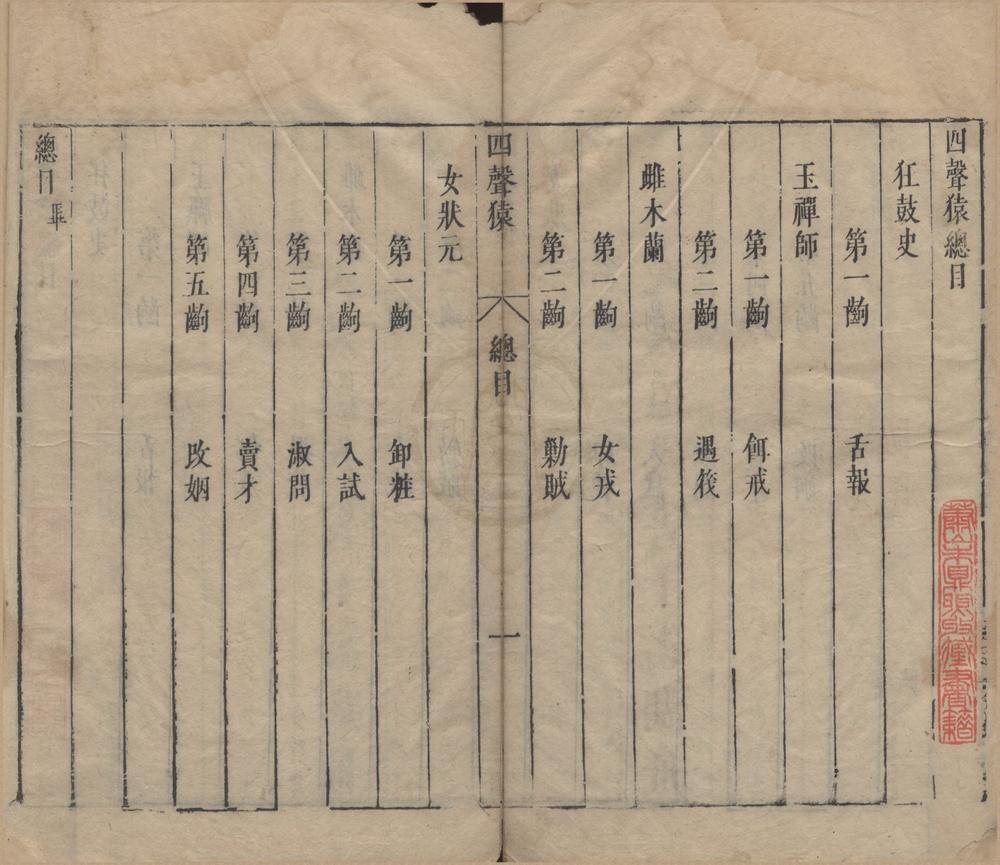 四聲猿總目
狂鼓史
第一齣 舌報
玉禪師
第一齣 佴戒
第二齣 遇筏
雌木蘭
第一齣 女戎
第二齣 勦賊
四聲猿 總目 一
女狀元
第一齣 卸粧
第二齣 入試
第三齣 淑問
第四齣 賣才
第五齣 改姻
總目畢
蕭山朱鼎煦收藏書籍